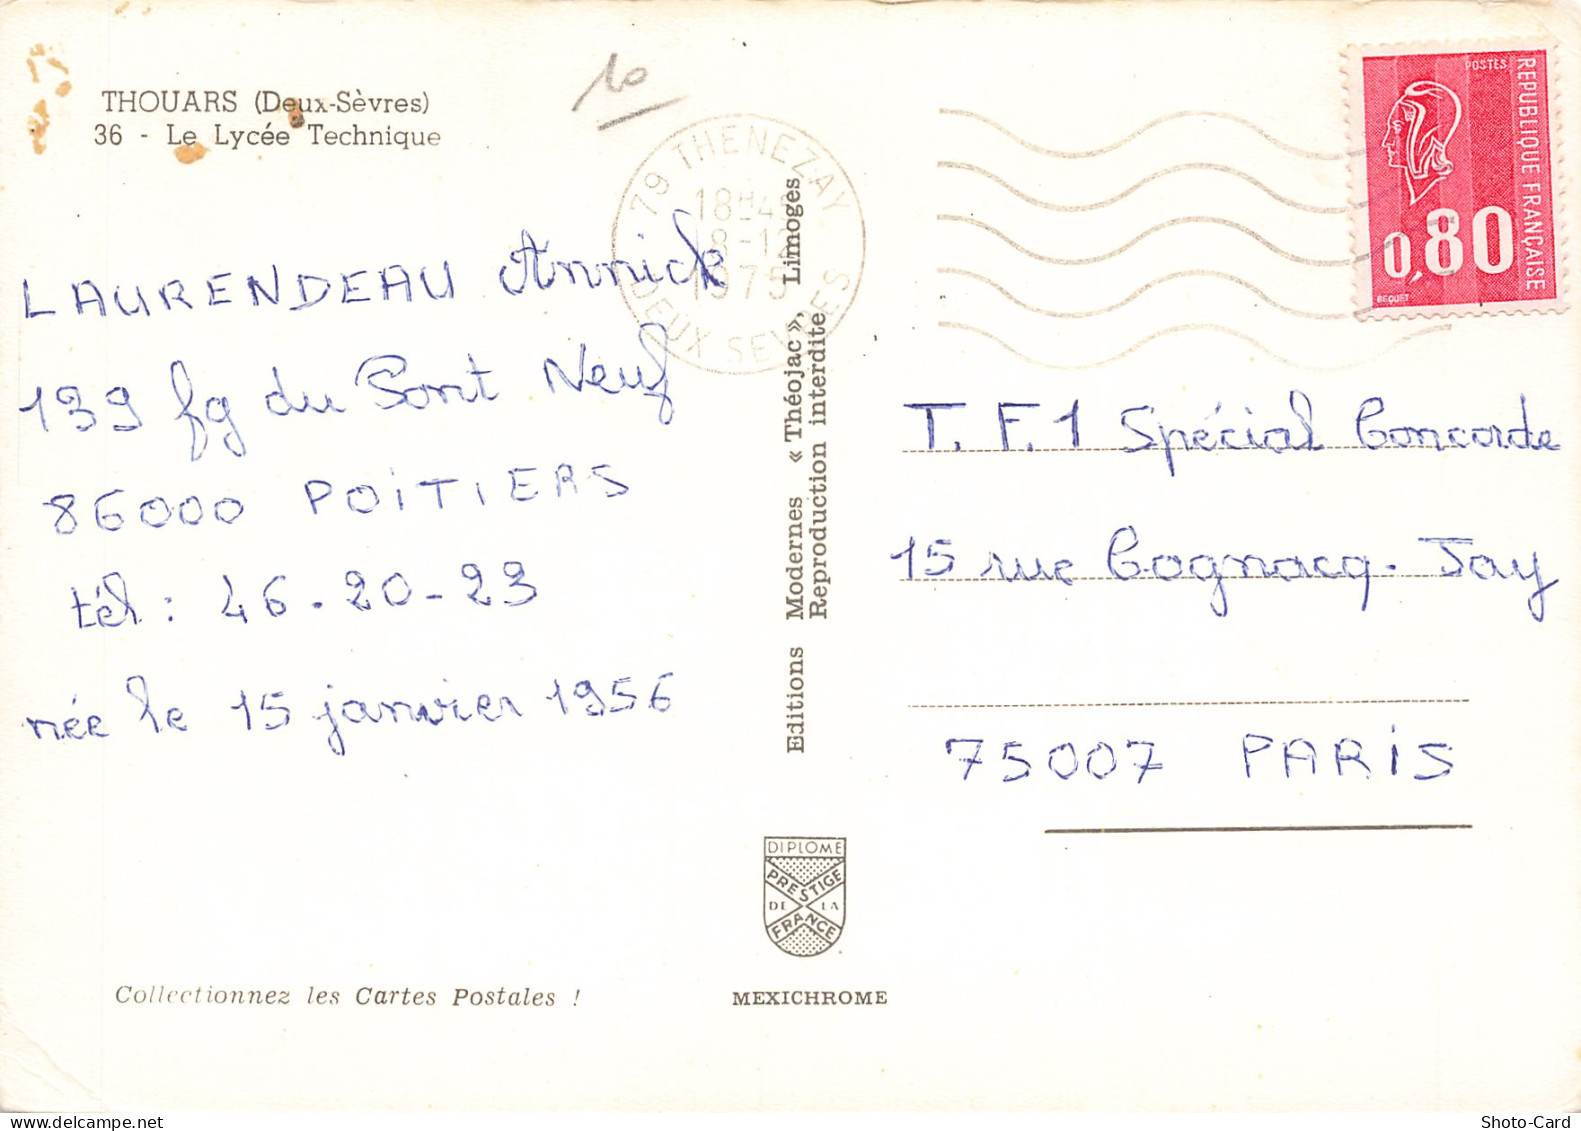 THOUARS (Deux-Sèvres)
36 - Le Lycée Technique
10
79 THENEZAY
18H4
8-1
1975
DEUX SEVRES
POSTES
REPUBLIQUE FRANÇAISE
0,80
BEQUET
LAURENDEAU Annick
139 fg du Pont Neuf
86000 POITIERS
tél : 46-20-23
née le 15 janvier 1956
Editions Modernes « Théojac », Limoges
Reproduction interdite
T.F.1 Spécial Concorde
15 rue Cognacq-Jay
75007 PARIS
DIPLOME
PRESTIGE
DE LA
FRANCE
Collectionnez les Cartes Postales !
MEXICHROME
www.delcampe.net
Shoto-Card